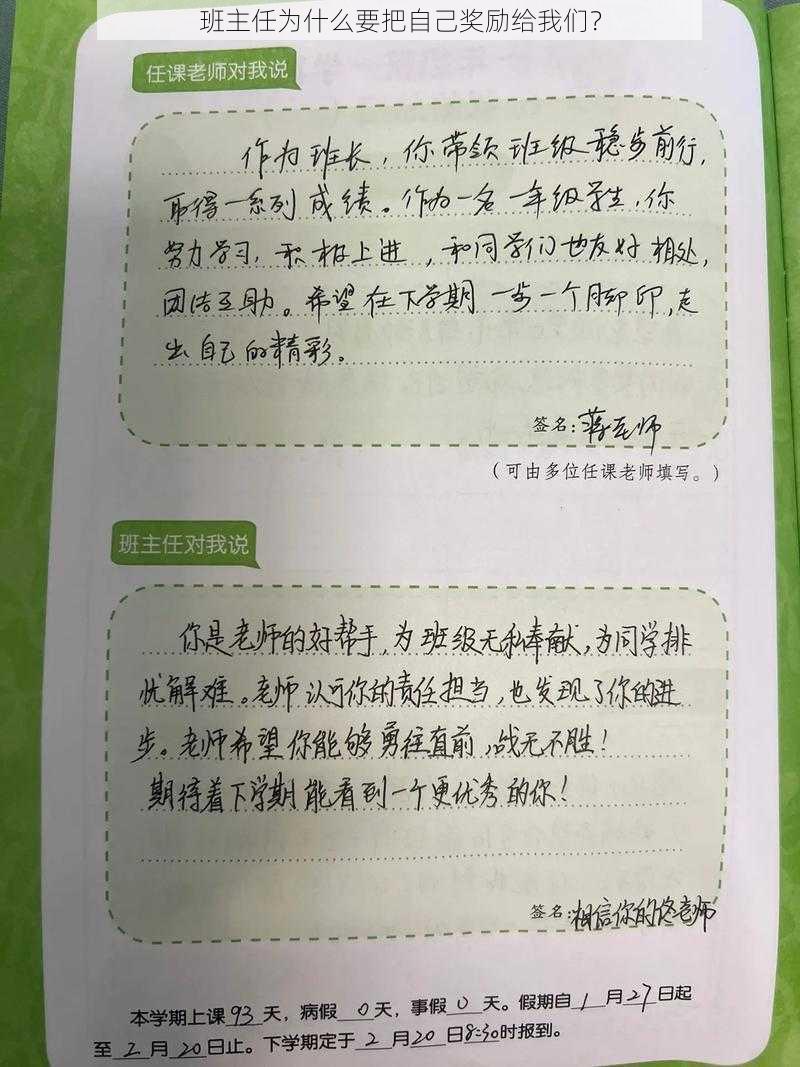 班主任为什么要把自己奖励给我们？
任课老师对我说
作为班长，你带领班级稳步前行，
取得一系列成绩。作为一名一年级学生，你
努力学习，积极上进，和同学们也友好相处，
团结互助。希望在下学期一步一个脚印，走
出自己的精彩。
签名：蒋老师
（可由多位任课老师填写。）
班主任对我说
你是老师的好帮手，为班级无私奉献，为同学排
忧解难。老师认可你的责任担当，也发现了你的进
步。老师希望你能够勇往直前，战无不胜！
期待着下学期能看到一个更优秀的你！
签名：相信你的佟老师
本学期上课93天，病假0天，事假0天。假期自1月27日起
至2月20日止。下学期定于2月20日8:30时报到。